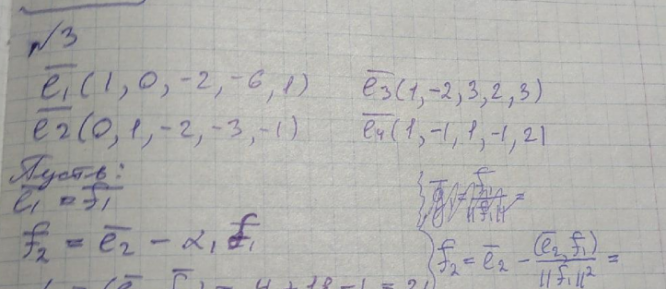 №3
e̅₁(1, 0, -2, -6, 1)    e̅₃(1, -2, 3, 2, 3)
e̅₂(0, 1, -2, -3, -1)    e̅₄(1, -1, 1, -1, 2)
Пусть:
e̅₁ = f̅₁
f̅₂ = e̅₂ - α₁ f̅₁
f̅₂ = e̅₂ - (e̅₂, f̅₁)/||f̅₁||² =
= 4 + 18 - 1 = 21